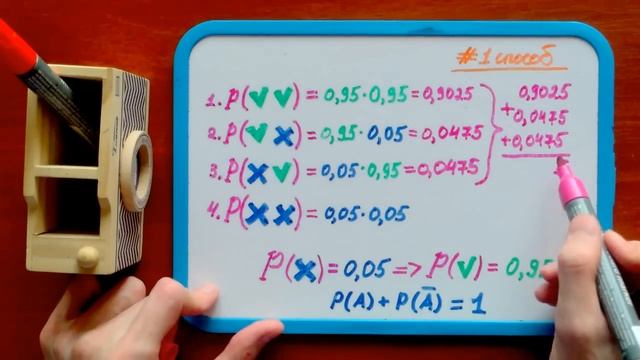 #1 способ
1. P(✓✓) = 0,95·0,95 = 0,9025
2. P(✓✗) = 0,95·0,05 = 0,0475
3. P(✗✓) = 0,05·0,95 = 0,0475
4. P(✗✗) = 0,05·0,05
0,9025
+0,0475
+0,0475
P(✗) = 0,05 => P(✓) = 0,95
P(A) + P(Ā) = 1